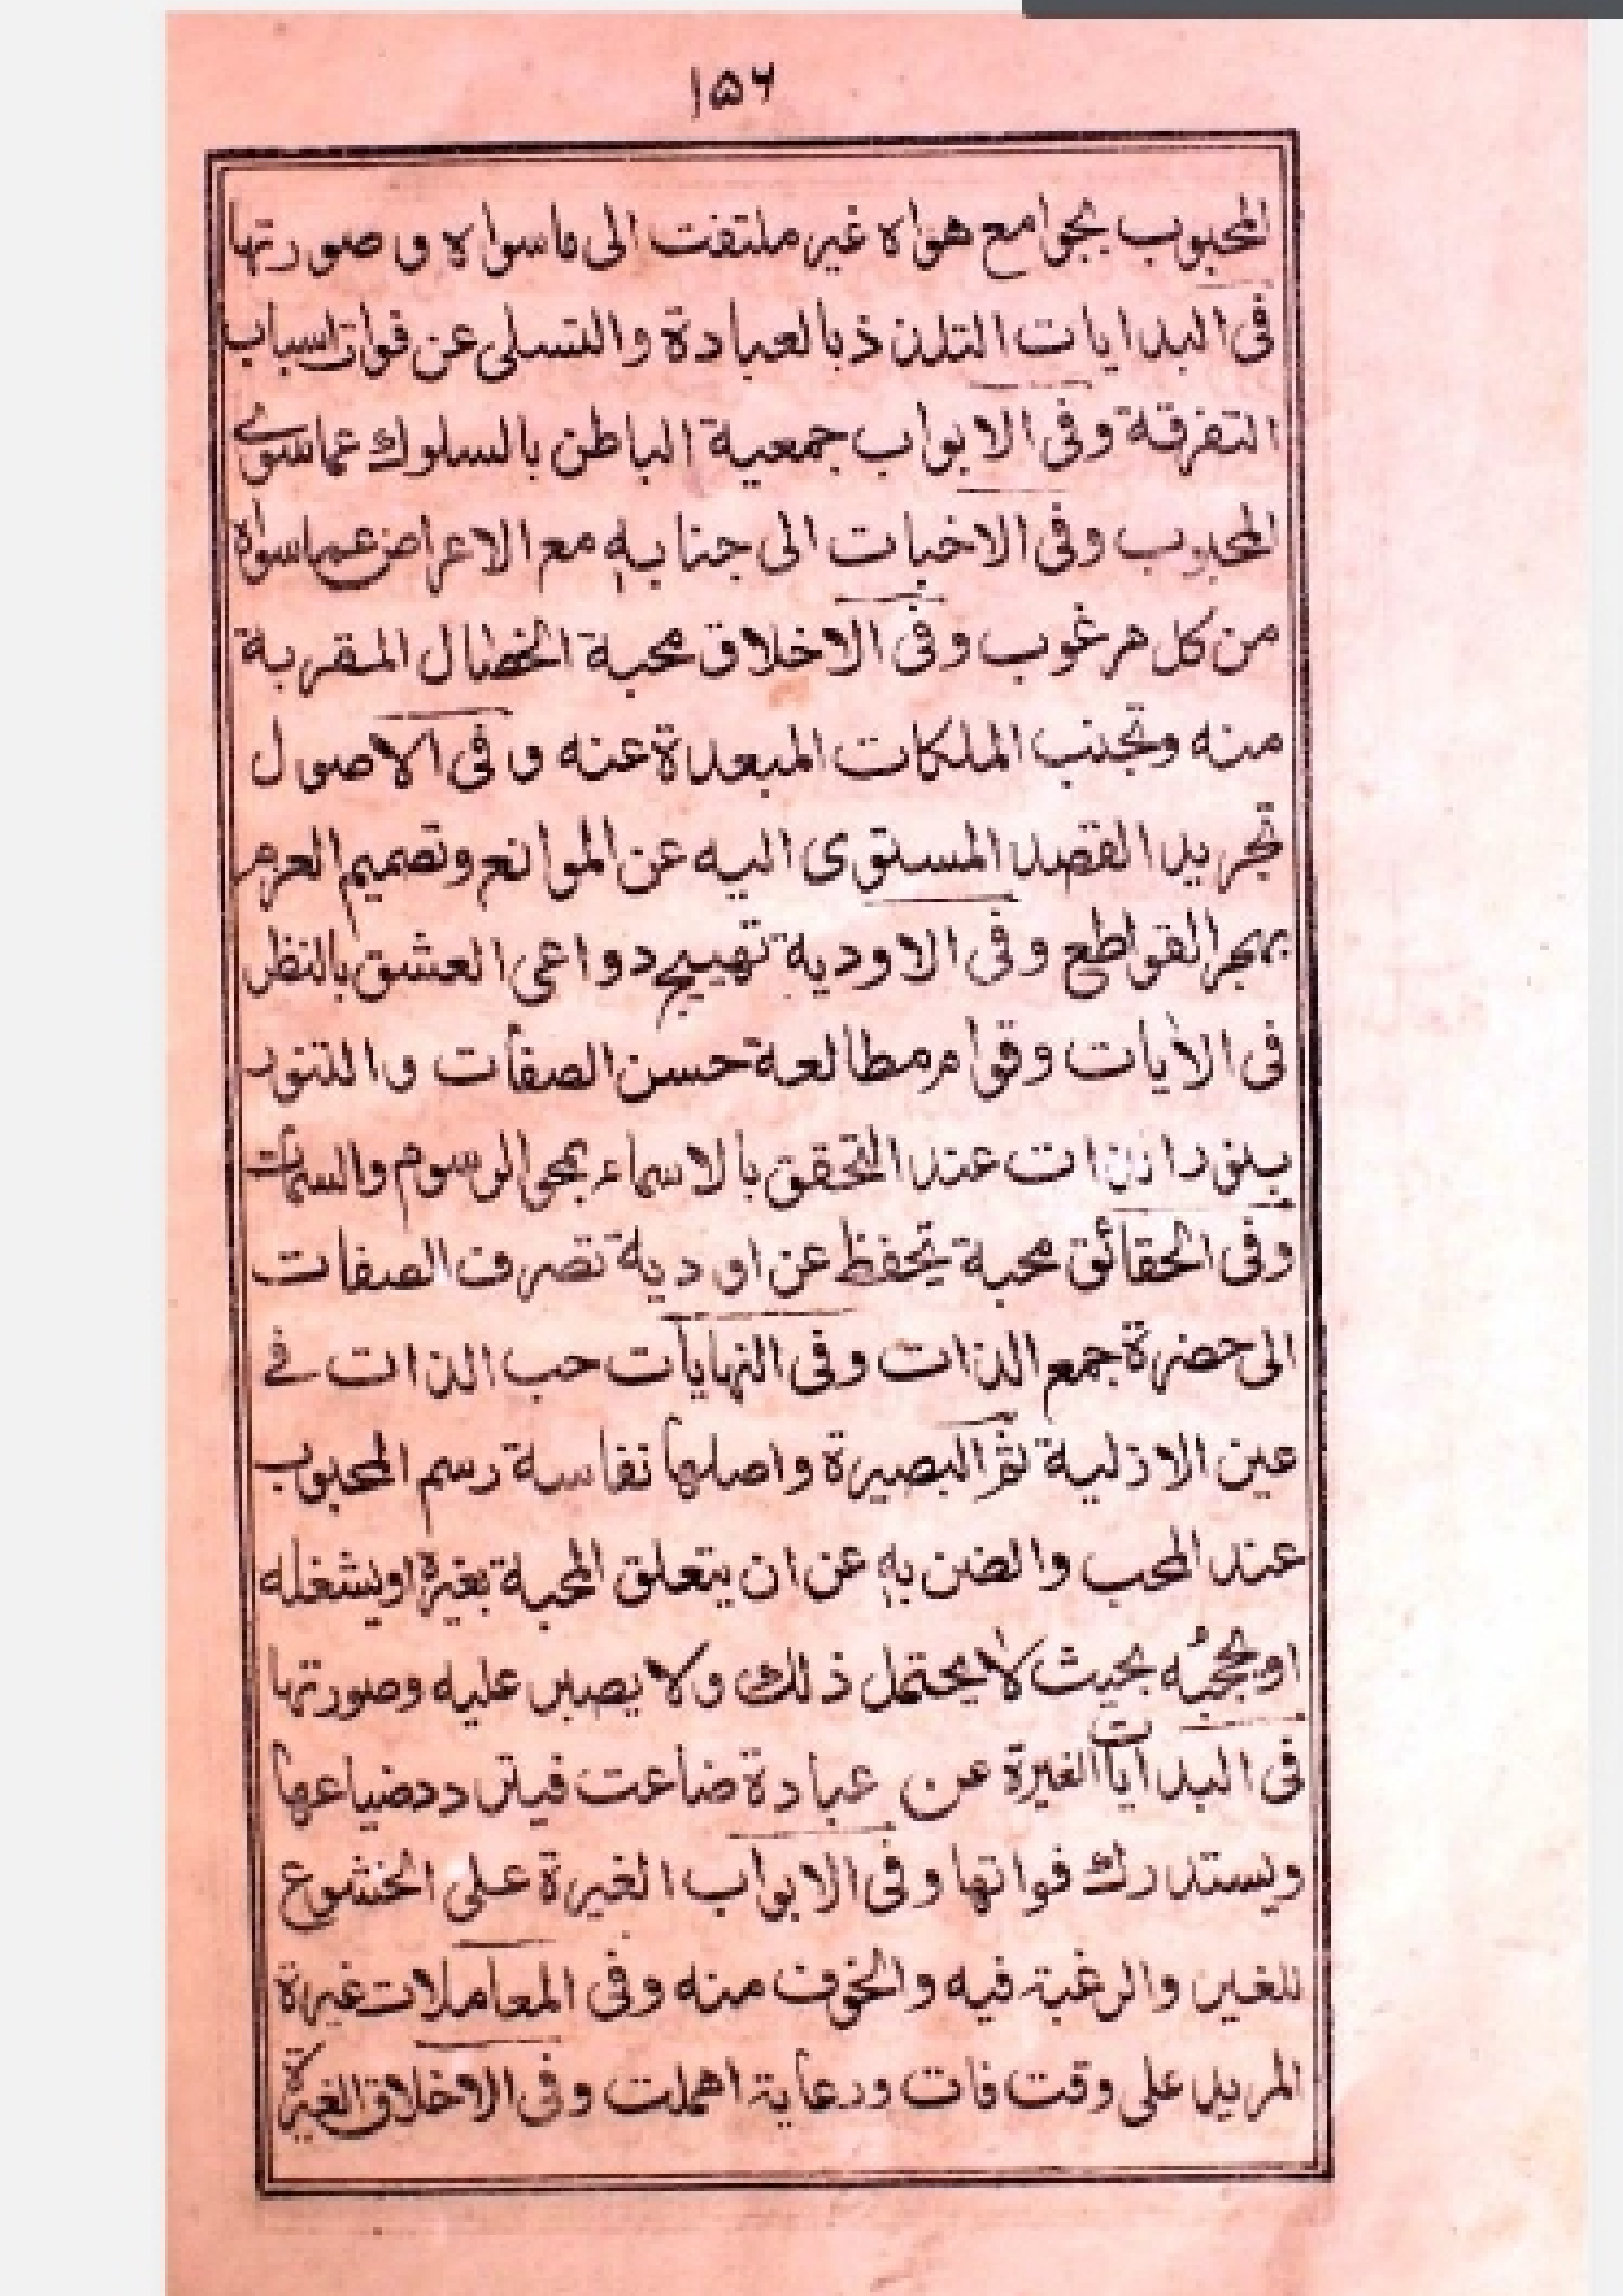 ١٥٦
المحبوب بجوامع هواه غير ملتفت الى ماسواه وصورتها
فى البدايات التلذذ بالعبادة والتسلى عن فوات اسباب
التفرقة وفى الابواب جمعية الباطن بالسلوك عماسوى
المحبوب وفى الاخبات الى جنابه مع الاعراض عماسواه
من كل مرغوب وفى الاخلاق محبة الخصال المقربة
منه وتجنب الملكات المبعدة عنه وفى الاصول
تجريد القصد المستوى اليه عن الموانع وتصميم العزم
بهجر القواطع وفى الاودية تهييج دواعى العشق بالنظر
فى الايات وقوام مطالعة حسن الصفات والتنور
بنور الذات عند التحقق بالاسماء بمحى الرسوم والسمات
وفى الحقائق محبة تحفظ عن اودية تصرف الصفات
الى حضرة جمع الذات وفى النهايات حب الذات فے
عين الازلية ثم البصيرة واصلها نفاسة رسم المحبوب
عند المحب والضن به عن ان يتعلق المحبة بغيره اويشغله
اويحجبُه بحيث لا يحتمل ذلك ولا يصبر عليه وصورتها
فى البدايات الغيرة عن عبادة ضاعت فيتردد ضياعها
ويستدرك فواتها وفى الابواب الغيرة على الخشوع
للغير والرغبة فيه والخوف منه وفى المعاملات غيرة
المريد على وقت فات ورعاية اهملت وفى الاخلاق الغيرة